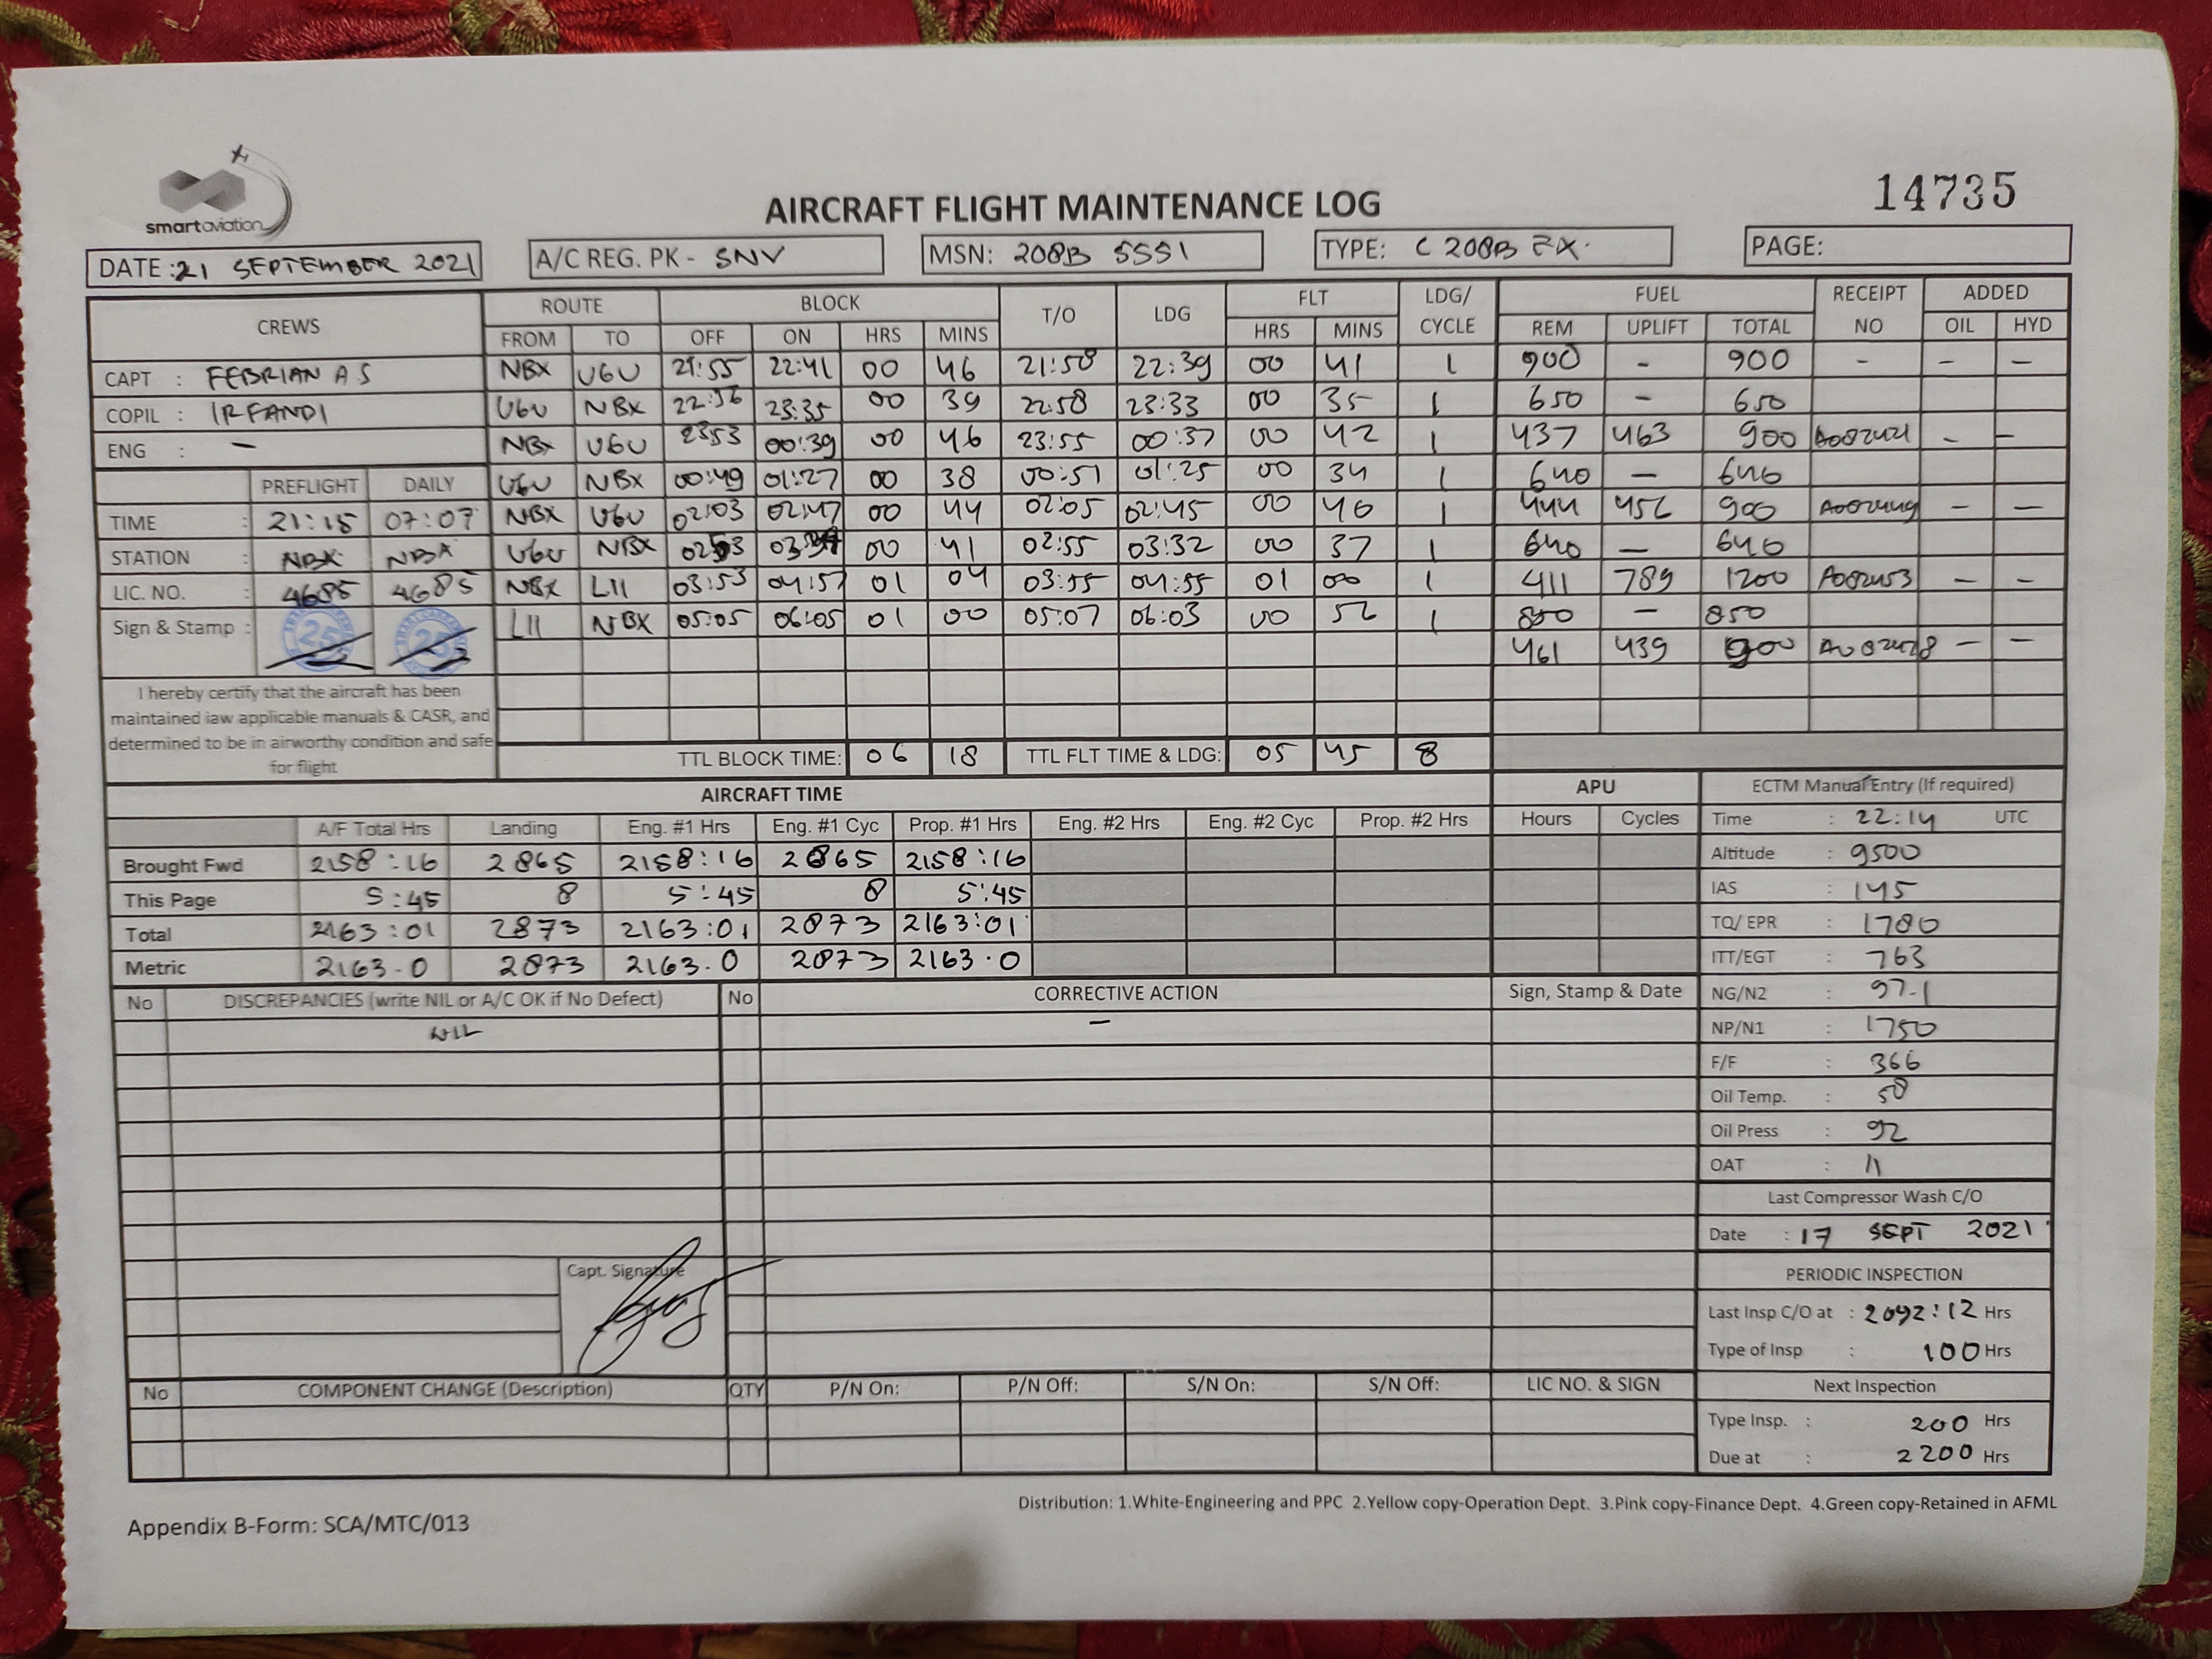 smartaviation
14735
AIRCRAFT FLIGHT MAINTENANCE LOG
DATE : 21 SEPTEMBER 2021 A/C REG. PK - SNV MSN: 208B 5551 TYPE: C 208B EX. PAGE:
CREWS ROUTE BLOCK T/O LDG FLT LDG/ CYCLE FUEL RECEIPT NO ADDED
FROM TO OFF ON HRS MINS HRS MINS REM UPLIFT TOTAL OIL HYD
CAPT : FEBRIAN A S NBX UGU 21:55 22:41 00 46 21:58 22:39 00 41 1 900 - 900 - - -
COPIL : IRFANDI UGU NBX 22:56 23:35 00 39 22:58 23:33 00 35 1 650 - 650
ENG : - NBX UGU 23:53 00:39 00 46 23:55 00:37 00 42 1 437 463 900 - -
PREFLIGHT DAILY UGU NBX 00:49 01:27 00 38 00:51 01:25 00 34 1 640 - 640
TIME : 21:15 07:07 NBX UGU 02:03 02:47 00 44 02:05 02:45 00 40 1 444 456 900 - -
STATION : NBX NBX UGU NBX 02:53 00 41 02:55 03:32 00 37 1 640 - 640
LIC. NO. : 4685 4685 NBX LII 03:53 04:57 01 04 03:55 04:55 01 00 1 411 789 1200 A002453 - -
Sign & Stamp : 25 25 LII NBX 05:05 06:05 01 00 05:07 06:03 00 56 1 850 - 850
461 439 900 - -
I hereby certify that the aircraft has been
maintained iaw applicable manuals & CASR, and
determined to be in airworthy condition and safe
for flight
TTL BLOCK TIME: 06 18 TTL FLT TIME & LDG: 05 45 8
AIRCRAFT TIME APU ECTM Manual Entry (If required)
A/F Total Hrs Landing Eng. #1 Hrs Eng. #1 Cyc Prop. #1 Hrs Eng. #2 Hrs Eng. #2 Cyc Prop. #2 Hrs Hours Cycles Time : 22:14 UTC
Brought Fwd 2158:16 2865 2158:16 2865 2158:16 Altitude : 9500
This Page 5:45 8 5:45 8 5:45 IAS : 145
Total 2163:01 2873 2163:01 2873 2163:01 TQ/ EPR : 1780
Metric 2163.0 2873 2163.0 2873 2163.0 ITT/EGT : 763
No DISCREPANCIES (write NIL or A/C OK if No Defect) No CORRECTIVE ACTION Sign, Stamp & Date NG/N2 : 97.1
NIL - NP/N1 : 1750
F/F : 366
Oil Temp. : 58
Oil Press : 92
OAT : 11
Last Compressor Wash C/O
Date : 17 SEPT 2021
Capt. Signature
PERIODIC INSPECTION
Last Insp C/O at : 2092:12 Hrs
Type of Insp : 100 Hrs
No COMPONENT CHANGE (Description) QTY P/N On: P/N Off: S/N On: S/N Off: LIC NO. & SIGN Next Inspection
Type Insp. : 200 Hrs
Due at : 2200 Hrs
Distribution: 1.White-Engineering and PPC 2.Yellow copy-Operation Dept. 3.Pink copy-Finance Dept. 4.Green copy-Retained in AFML
Appendix B-Form: SCA/MTC/013